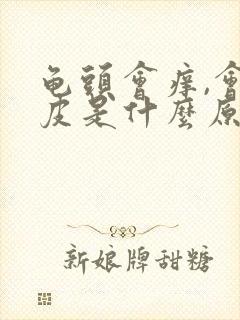 龟頭會痒,會
皮是什麼原
新娘牌甜糖